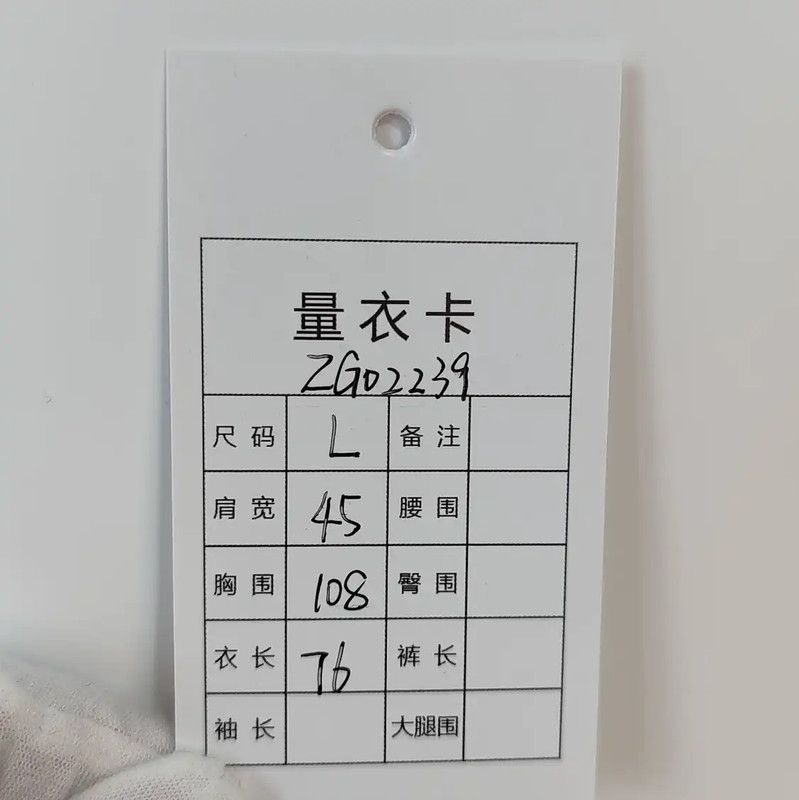 量衣卡
ZG02239
尺码 L 备注
肩宽 45 腰围
胸围 108 臀围
衣长 76 裤长
袖长 大腿围